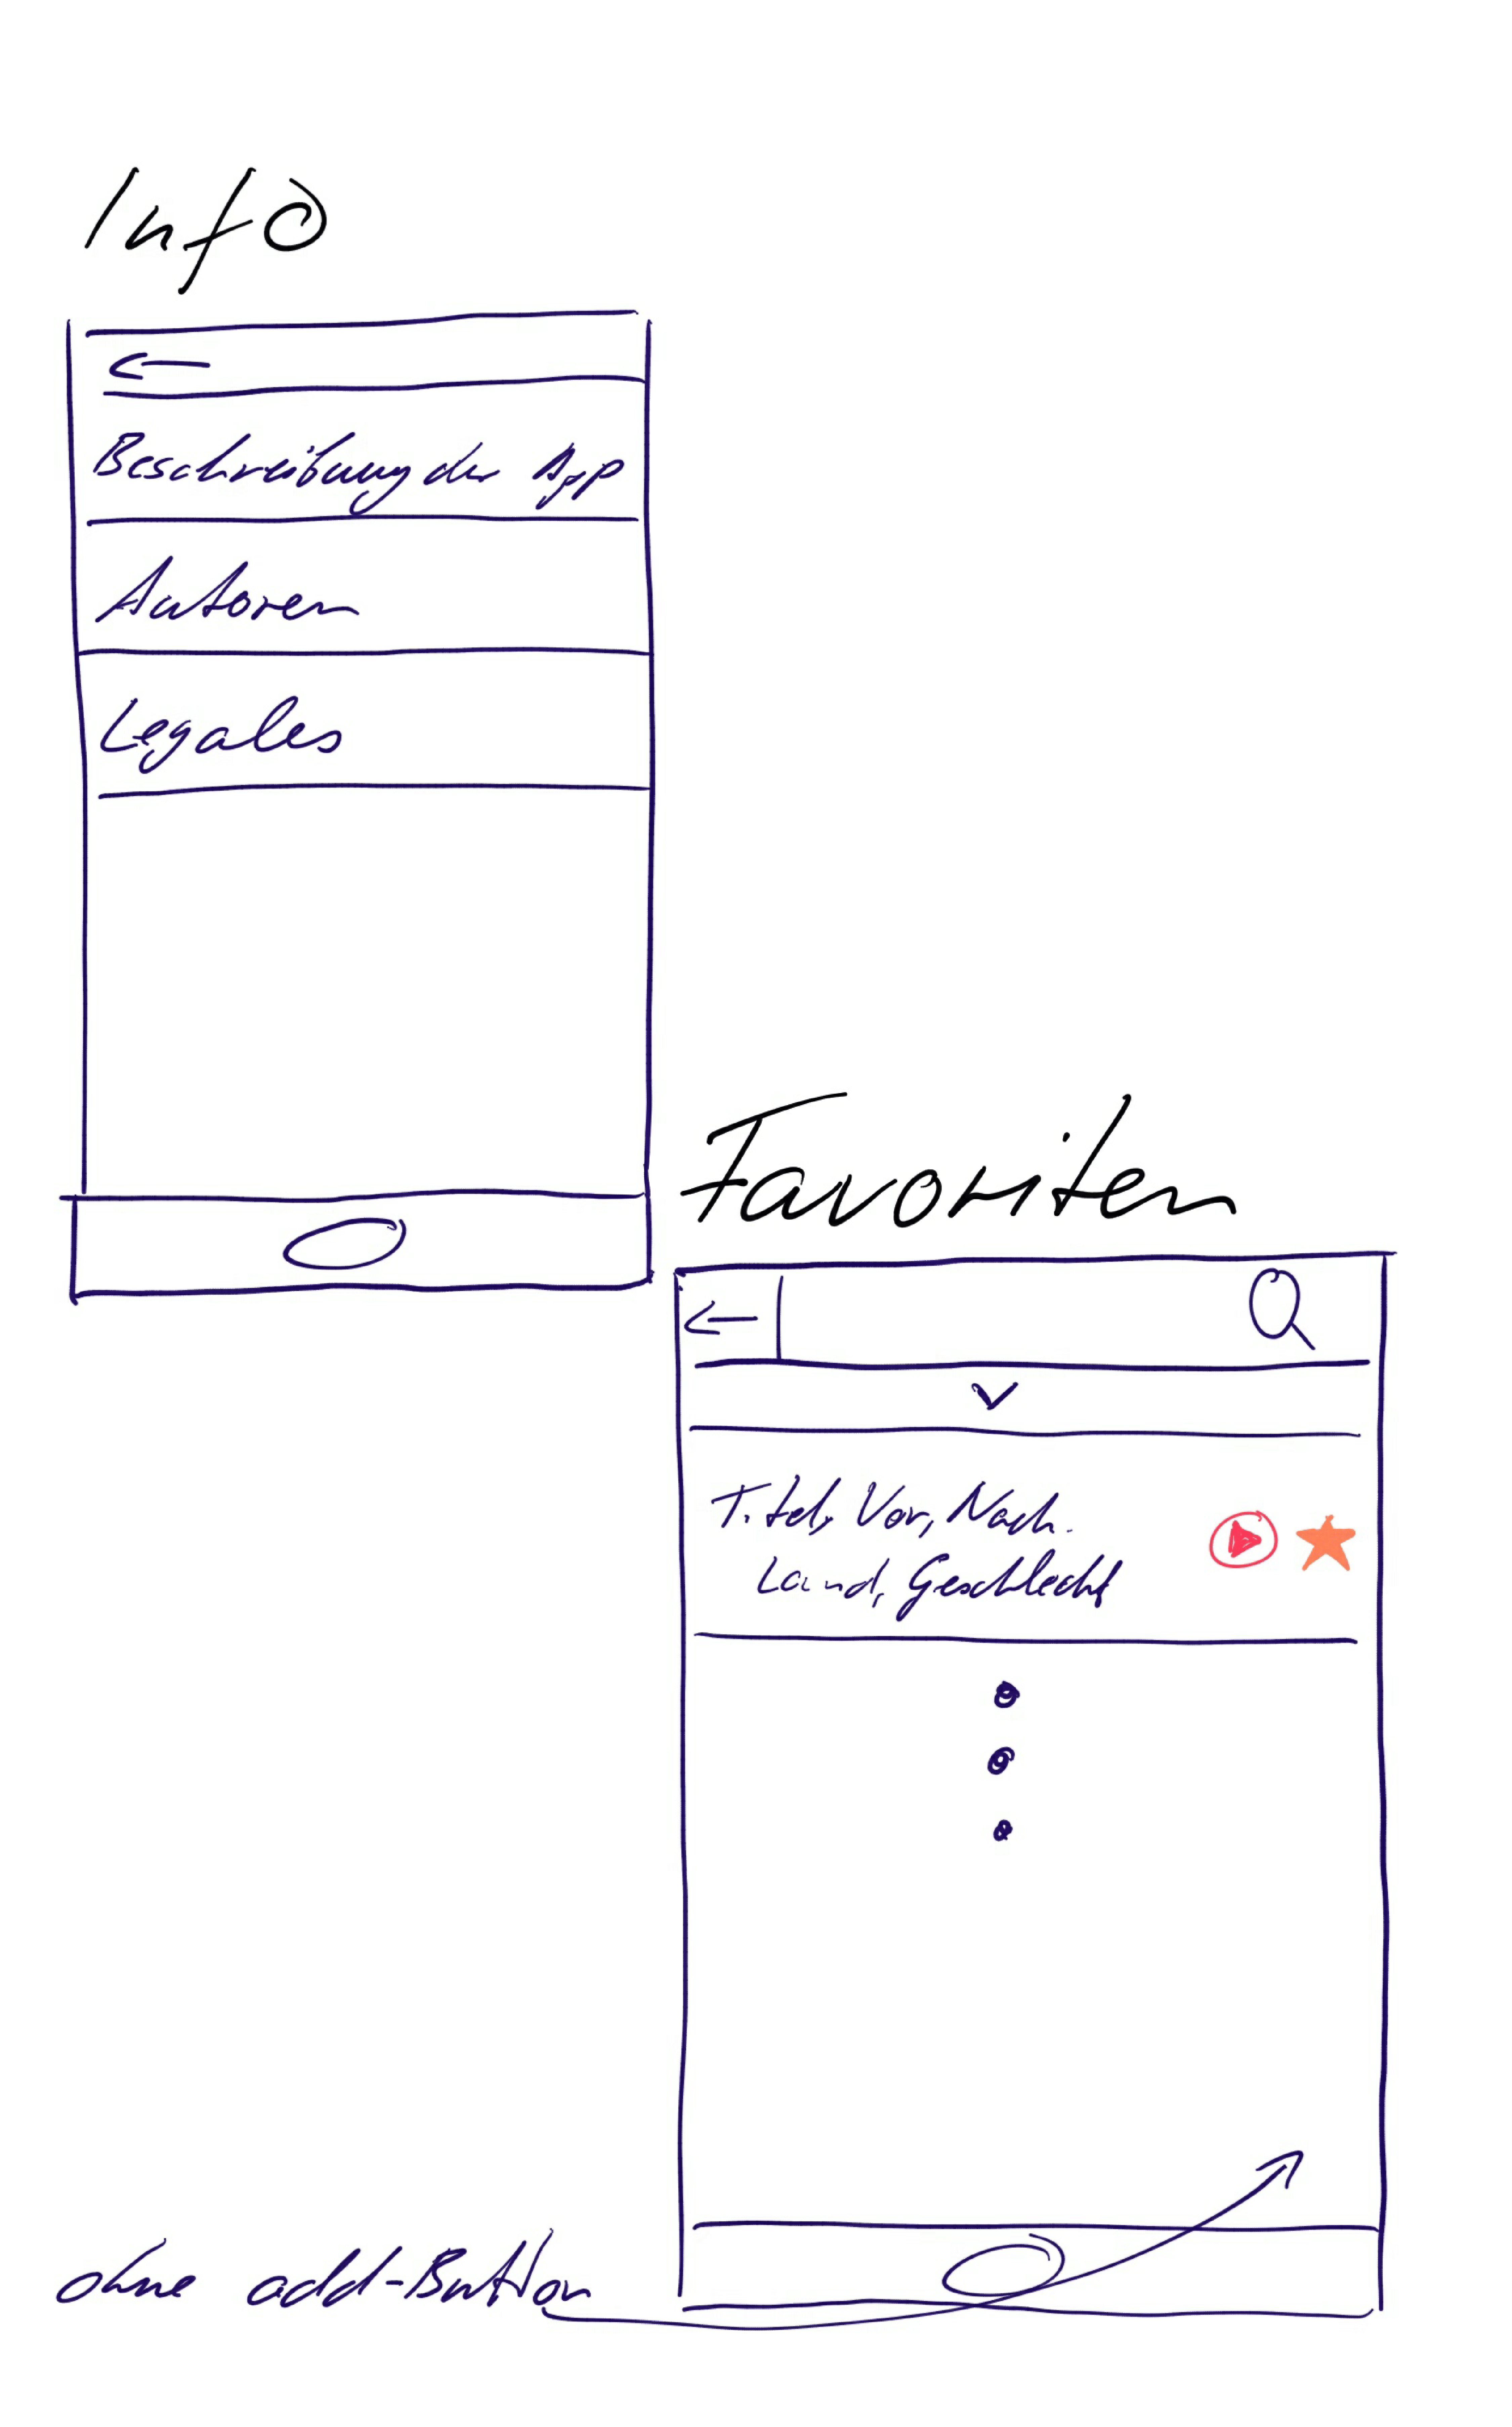 Info
Beschreibung der App
Autoren
Legales
Favoriten
Titel, Vor, Nach.
Land, Geschlecht
ohne add-Button